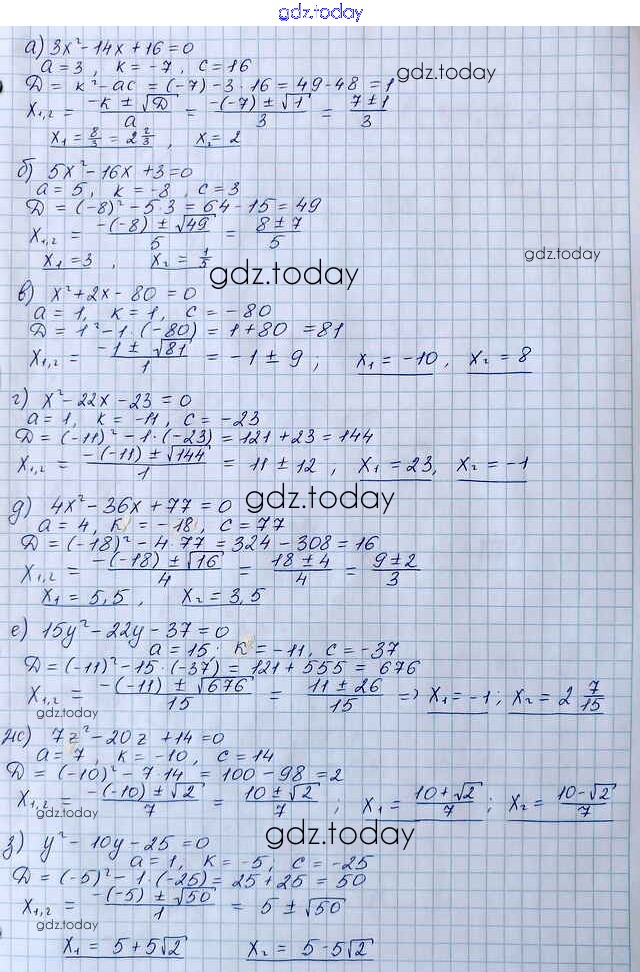 gdz.today
а) 3x² - 14x + 16 = 0
a = 3, k = -7, c = 16
gdz.today
D = k² - ac = (-7) - 3 · 16 = 49 - 48 = 1
x₁,₂ = (-k ± √D)/a = (-(-7) ± √1)/3 = (7 ± 1)/3
x₁ = 8/3 = 2 2/3, x₂ = 2
б) 5x² - 16x + 3 = 0
a = 5, k = -8, c = 3
D = (-8)² - 5 3 = 64 - 15 = 49
x₁,₂ = (-(-8) ± √49)/5 = (8 ± 7)/5
gdz.today
x₁ = 3, x₂ = 1/5
gdz.today
в) x² + 2x - 80 = 0
a = 1, k = 1, c = -80
D = 1² - 1 · (-80) = 1 + 80 = 81
x₁,₂ = (-1 ± √81)/1 = -1 ± 9; x₁ = -10, x₂ = 8
г) x² - 22x - 23 = 0
a = 1, k = -11, c = -23
D = (-11)² - 1 · (-23) = 121 + 23 = 144
x₁,₂ = (-(-11) ± √144)/1 = 11 ± 12, x₁ = 23, x₂ = -1
gdz.today
д) 4x² - 36x + 77 = 0
a = 4, k = -18, c = 77
D = (-18)² - 4 · 77 = 324 - 308 = 16
x₁,₂ = (-(-18) ± √16)/4 = (18 ± 4)/4 = (9 ± 2)/3
x₁ = 5,5, x₂ = 3,5
е) 15y² - 22y - 37 = 0
a = 15; k = -11, c = -37
D = (-11)² - 15 · (-37) = 121 + 555 = 676
x₁,₂ = (-(-11) ± √676)/15 = (11 ± 26)/15 => x₁ = -1; x₂ = 2 7/15
gdz.today
ж) 7z² - 20z + 14 = 0
a = 7, k = -10, c = 14
D = (-10)² - 7 · 14 = 100 - 98 = 2
x₁,₂ = (-(-10) ± √2)/7 = (10 ± √2)/7; x₁ = (10 + √2)/7; x₂ = (10 - √2)/7
gdz.today
gdz.today
з) y² - 10y - 25 = 0
a = 1, k = -5, c = -25
D = (-5)² - 1 · (-25) = 25 + 25 = 50
x₁,₂ = (-(-5) ± √50)/1 = 5 ± √50
gdz.today
x₁ = 5 + 5√2 x₂ = 5 - 5√2